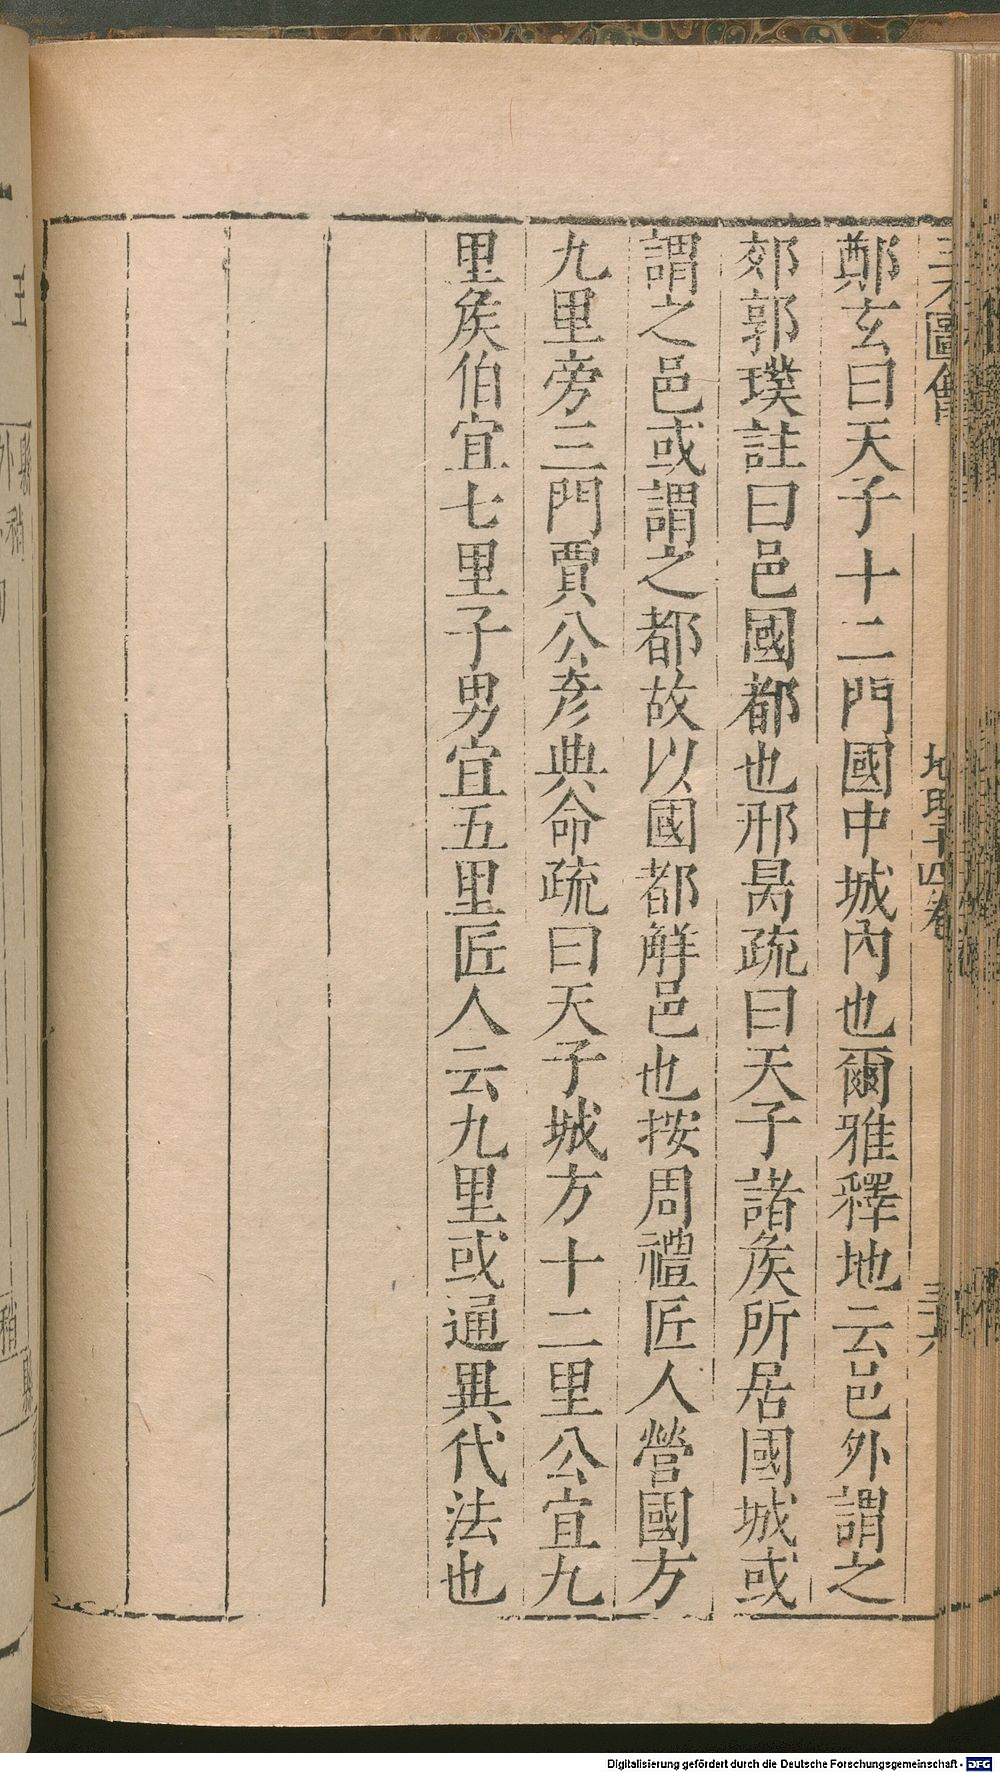 三才圖會
地理十四卷
鄭玄曰天子十二門國中城內也爾雅釋地云邑外謂之
郊郭璞註曰邑國都也邢昺疏曰天子諸矦所居國城或
謂之邑或謂之都故以國都解邑也按周禮匠人營國方
九里旁三門賈公彥典命疏曰天子城方十二里公宜九
里矦伯宜七里子男宜五里匠人云九里或通異代法也
Digitalisierung gefördert durch die Deutsche Forschungsgemeinschaft - DFG